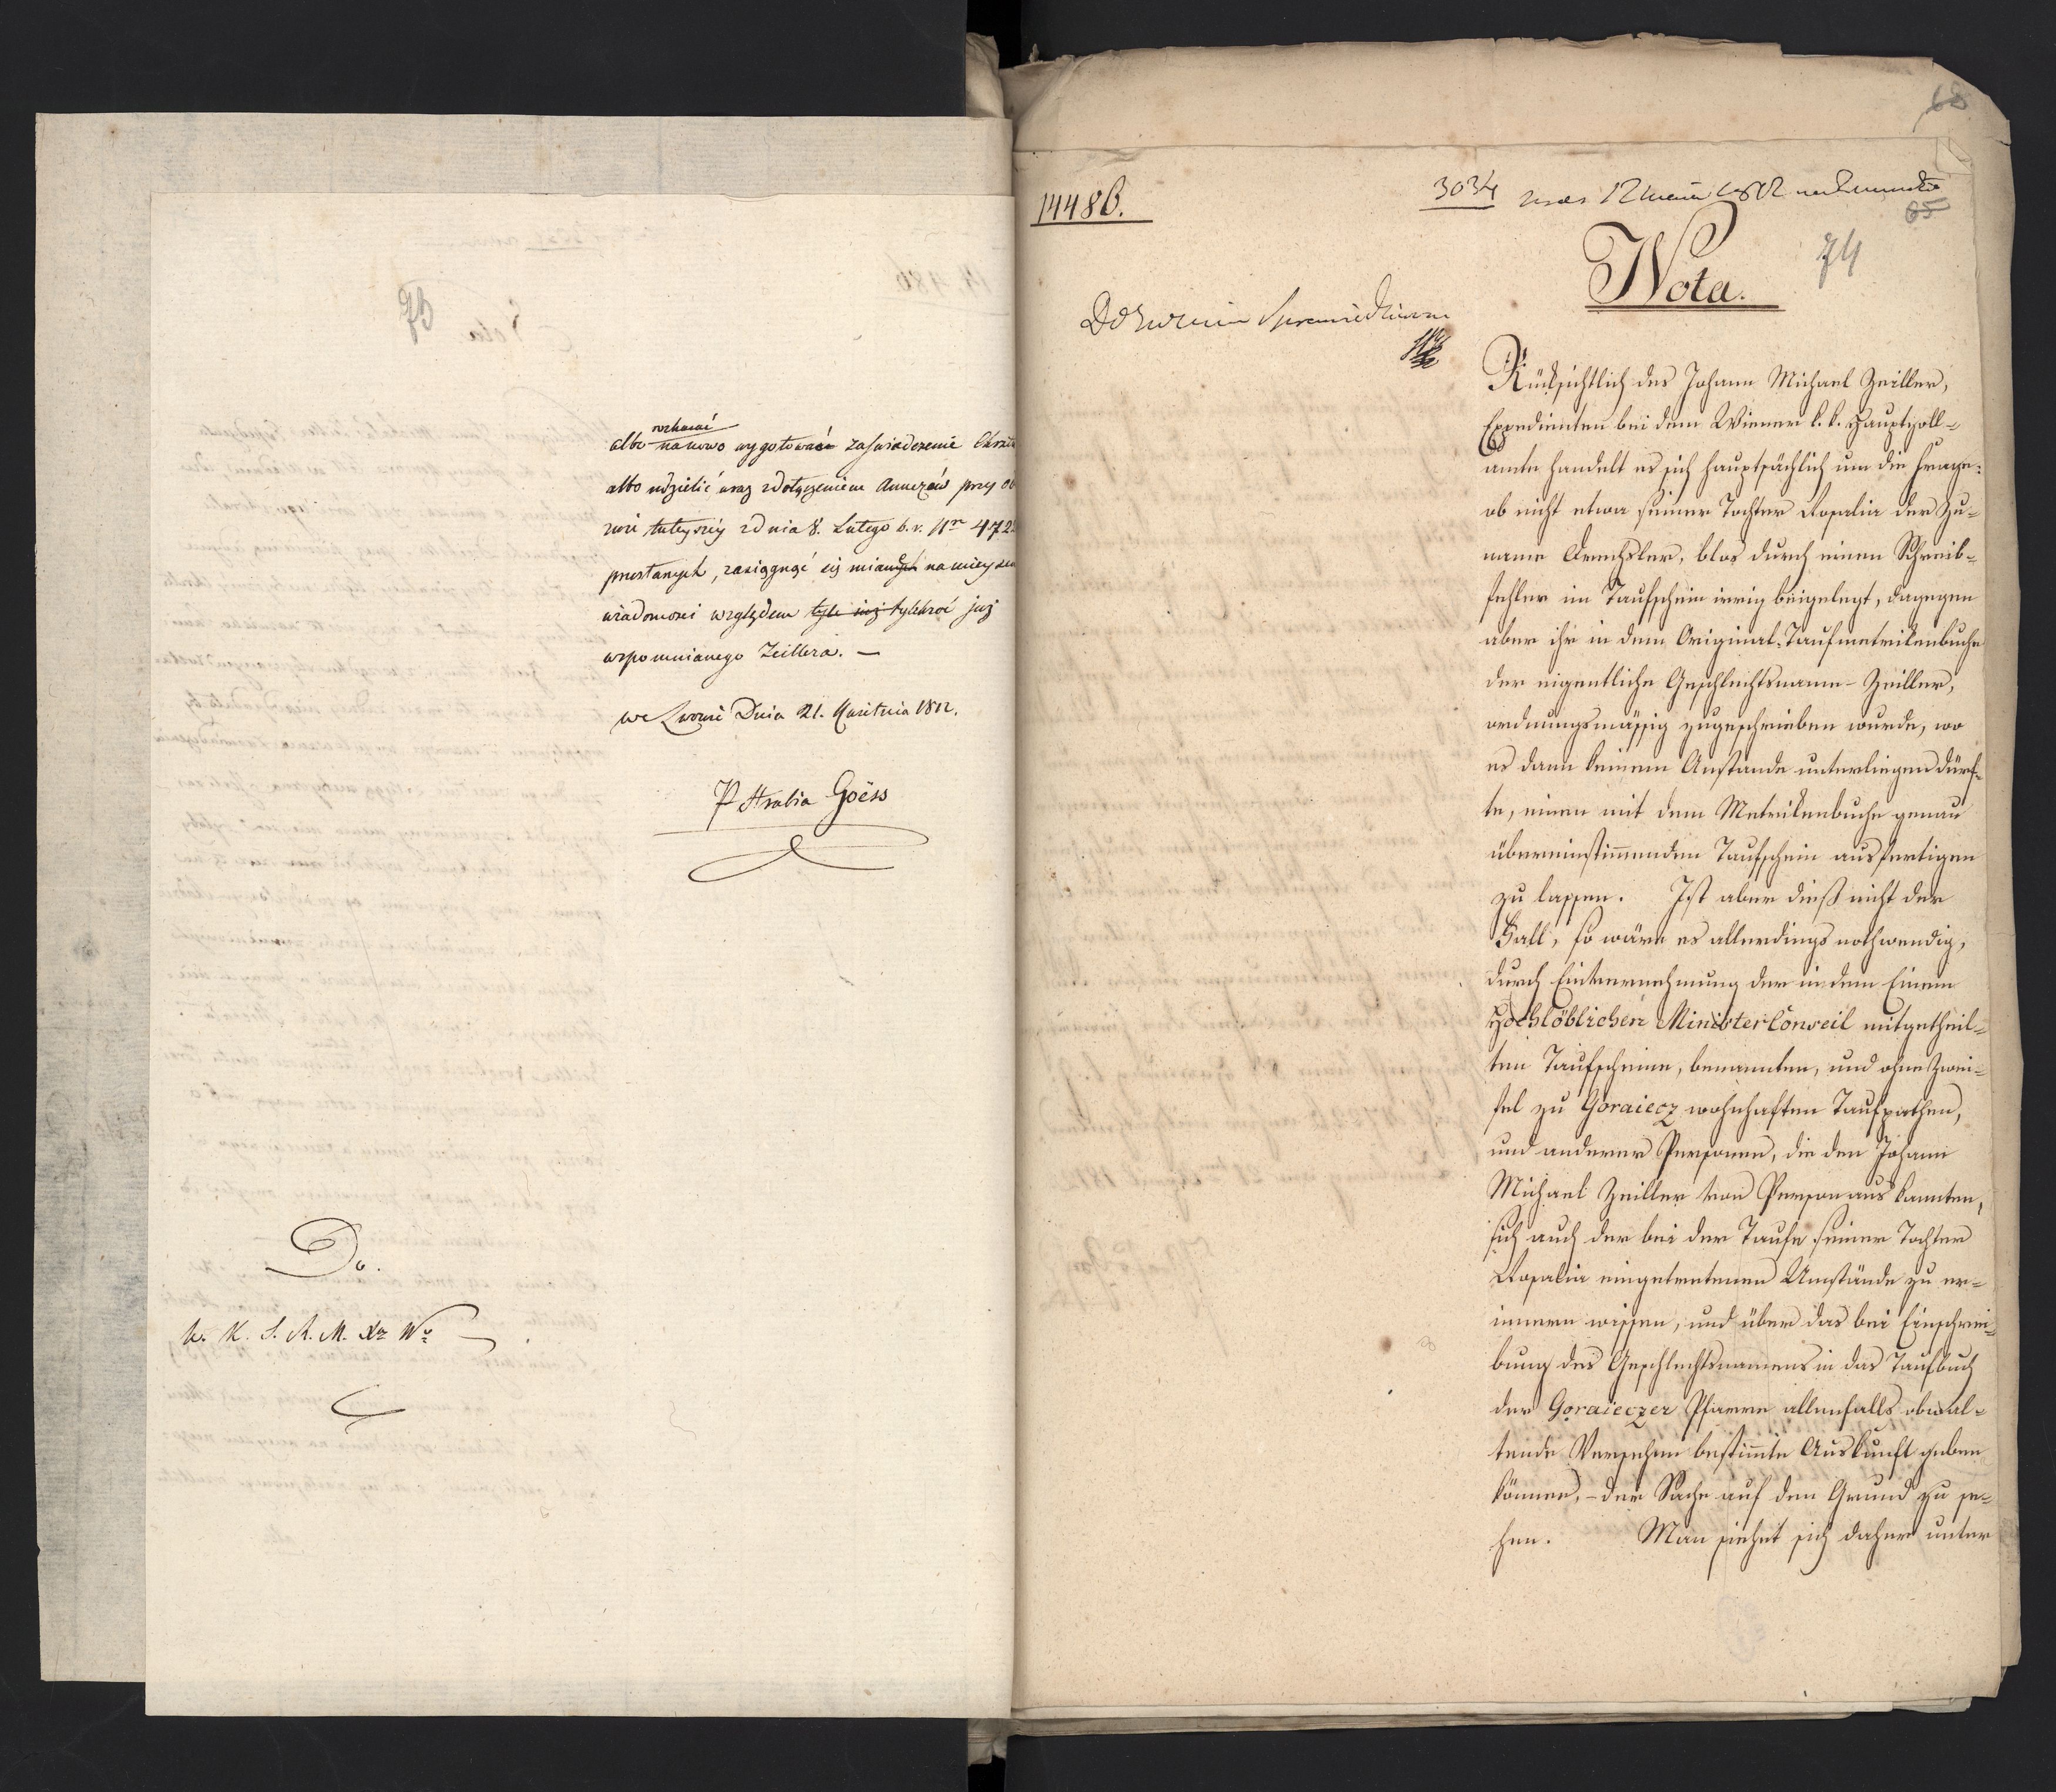 rozkazać
albo nanowo wygotować zaświadczenie Chrztu
albo udzielić oraz zdołączeniem Annexów przy od
zwie tuteyszey z dnia 8. Lutego b. r. Nro 472
przesłanych, zasiągnąć się mianych na mieyscu
wiadomości względem tyle już tylekroć już
wspomnianego Zeillera. —
we Lwowie Dnia 21. Kwietnia 1812.
P Hrabia Goëss
Do.
W. K. S. A. M. Xa Wo
73
68
14486.
3034
65
74
Nota.
Rücksichtlich des Johann Michael Zeiller,
Expedienten bei dem Wiener k. k. Hauptzoll-
amte handelt es sich hauptsächlich um die Frage:
ob nicht etwa seiner Tochter Rosalia der Zu-
name Drechsler, blos durch einen Schreib-
fehler im Taufschein irrig beigelegt, dagegen
aber ihr in dem Original-Taufmetrikenbuche
der eigentliche Geschlechtsname Zeiller,
ordnungsmässig zugeschrieben wurde, wo
es dann keinem Anstande unterliegen dürf-
te, einen mit dem Metrikenbuche genau
übereinstimmenden Taufschein ausfertigen
zu lassen. Ist aber dieß nicht der
Fall, so wäre es allerdings nothwendig,
durch Einvernehmung der in dem Einem
Hochlöblichen Minister Conseil mitgetheil-
ten Taufscheine, benannten, und ohne Zwei-
fel zu Goraiecz wohnhaften Taufpathen,
und anderer Personen, die den Johann
Michael Zeiller von Person aus kannten,
sich auch der bei der Taufe seiner Tochter
Rosalia eingetretenen Umstände zu er-
innern wissen, und über das bei Einschrei-
bung des Geschlechtsnamens in das Taufbuch
der Goraieczer Pfarre allenfalls obwal-
tende Versehen bestimmte Auskunft geben
können, - der Sache auf den Grund zu se-
hen. Man siehet sich daher unter